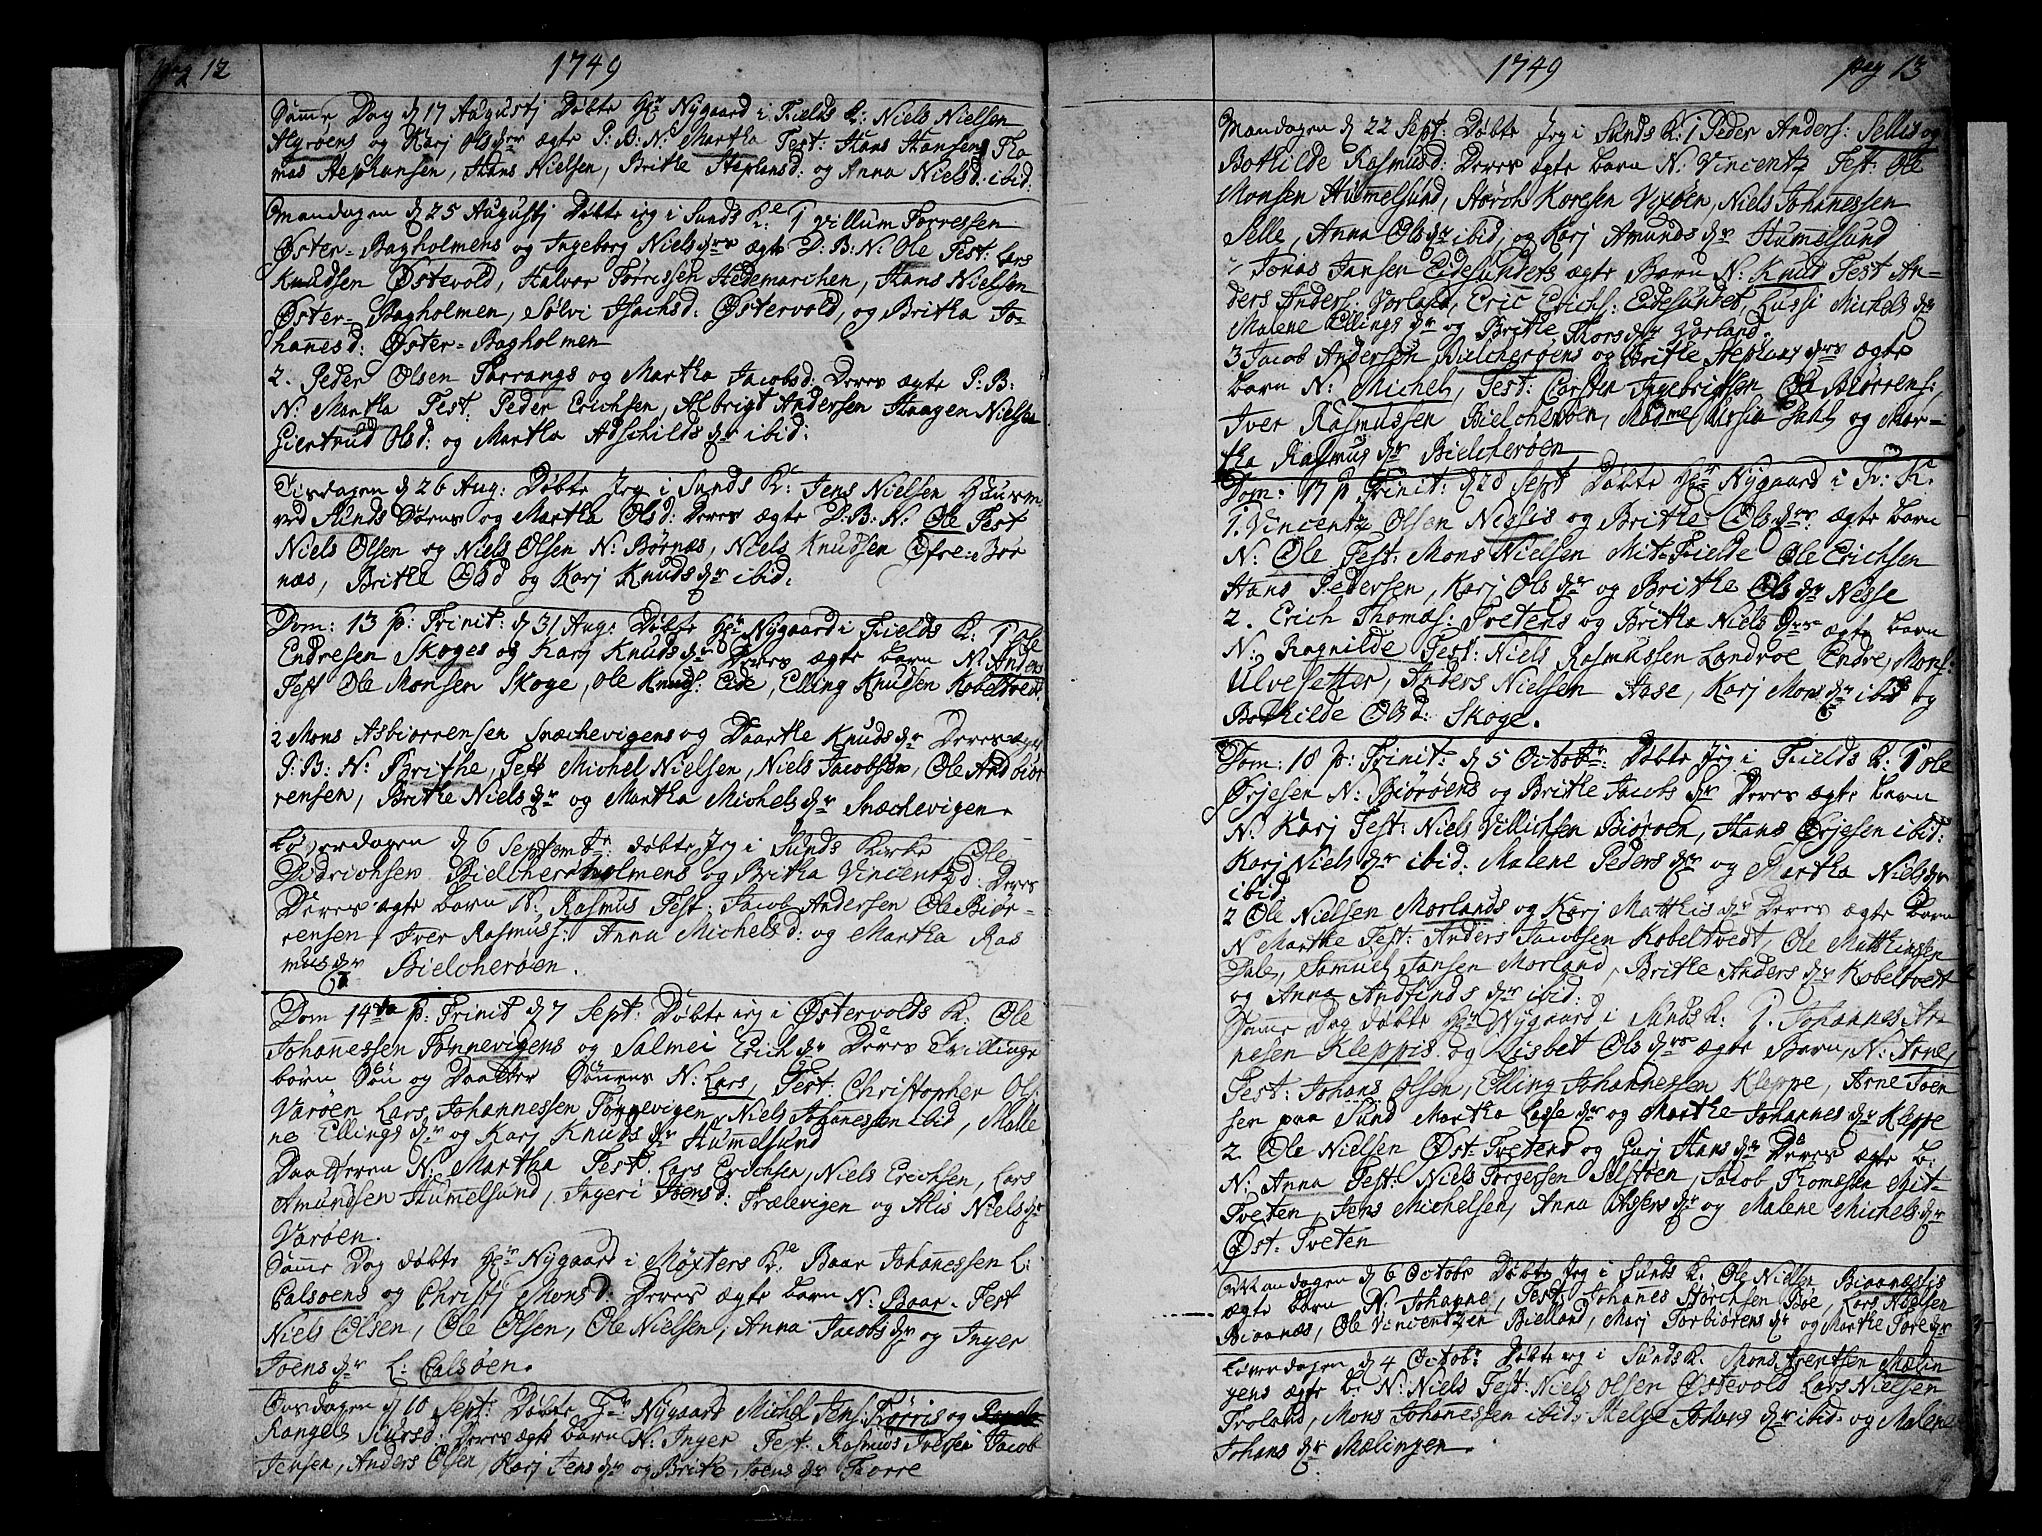 pag 12
1749
Samme Dag d 17 Augustj Døbte Hr Nygaard i Fields K: Niels Nielsen
Algrøens og Karj Olsdr ægte P: B: N: Martha Test: Hans Hansen, Tho
mas Stephansen, Hans Nielsen, Brithe Stephansd: og Anna Nielsd: ibid:
Mandagen d 25 Augustj Døbte ieg i Sunds Ke: 1 Villum Torressen
Øster-Bagholmens og Ingeborg Nielsdrs ægte D: B: N: Ole Test: Lars
Knudsen Østevold, Halvor Tørrissen Hedemarchen, Hans Nielsen
Øster-Bagholmen, Sølvi Isachsd: Østervold, og Britha Jo-
hanesd: Øster-Bagholmen
2. Peder Olsen Torrangs og Martha Jacobsd: Deres ægte P: B:
N: Martha Test: Peder Erichsen, Albrigt Andersen Haagen Nielsen
Giertrud Olsd: og Martha Adschildsdr ibid:
Tirsdagen d 26 Aug: Døbte Jeg i Sunds K: Jens Nielsen Huusm
ved Sunds Søens og Martha Olsd: Deres ægte D: B: N: Ole Test
Niels Olsen og Niels Olsen N: Børnæs, Niels Knudsen Øfre: Bør
næs, Brithe Olsd og Karj Knudsdr ibid:
Dom: 13 p: Trinit: d 31 Aug: Døbte Hr Nygaard i Fields K: 1 Ole
Endresen Skoges og Karj Knudsdr Deres ægte barn N: Anders
Test Ole Monsen Skoge, Ole Knuds: Eide, Elling Knudsen Kobeltvedt
2 Mons Asbiørrensen Snæchevigens og Daarthe Knudsdr Deres ægte
P: B: N: Brithe, Test Michel Nielsen, Niels Jacobsen, Ole Andbiør
rensen, Brithe Nielsdr og Martha Michelsdr Snæchevigen.
Løverdagen d 6 Septembr: døbte Jeg i Sunds Kirke Ole
Didrichsen Bielcherøeholmens og Britha Vincentzd: Deres
Deres ægte barn N: Rasmus Test: Jacob Andersen Ole Biør-
rensen, Iver Rasmuss: Anna Michelsd: og Martha Ras
musdr Bielcherøen.
Dom 14de p: Trinit d 7 Sept: Døbte ieg i Østervolds K: Ole
Johanessen Tønnevigens og Salmei Erichdr Deres Tvillinge
børn Søn og Daatter Sønens N: Lars, Test: Christopher Ols:
Varøen Lars Johannessen Tønnevigen, Niels Johanessen ibid, Malle
ne Ellingsdr og Karj Knudsdr Humelsund
Daatteren N: Martha Test: Lars Erichsen, Niels Erichsen, Lars
Amundsen Humelsund, Ingeri Joensd: Trælevigen og Alis Nielsdr
Varøen.
Samme Dag døbte Hr Nygaard i Møxters Ke Baar Johanessen L:
Calsøens og Christj Monsd Deres ægte barn N: Baar. Test
Niels Olsen, Ole Olsen, Ole Nielsen, Anna Jacobsdr og Inger
Joensdr L: Calsøen.
Onsdagen d 10 Sept: Døbte Hr Nygaard Michel Jens: Torris og
Rangele Siursd: Deres ægte barn N: Inger Test: Rasmus Iversen Jacob
Jensen, Anders Olsen, Karj Jensdr og Brithe Joensdr Torre
1749
pag 13
Mandagen d 22 Sept: Døbte Jeg i Sunds K: 1 Peder Anders: Sellis og
Bothilde Rasmusd: Deres ægte barn N: Vincentz Test: Ole
Monsen Humelsund, Størch Koresen Vixøen, Niels Johanessen
Selle, Anna Olsdr ibid, og Karj Amundsdr Hummelsund
2 Jonas Jansen Eidesundets ægte Barn N: Knud Test An-
ders Anders: Vorland, Eric Erichs: Eidesundet, Lussi Michelsdr
Malene Ellingsdr og Brithe Thorsdr Vorland.
3 Jacob Andersen Bielcherøens og Brithe Stephansdrs ægte
barn N: Michel, Test: Carsten Ingebritsen Ole Biørrens:
Iver Rasmussen Bielcherøen, Madme Dahl og Mar-
tha Rasmusdr Bielcherøen
Dom: 17 p: Trinit: d 28 Sept Døbte Hr Nygaard i Fi: K.
1. Vincentz Olsen Nessis og Brithe Olsdrs ægte barn
N: Ole Test: Mons Nielsen Mit-Fielde Ole Erichsen
Hans Pedersen, Karj Olsdr og Brithe Olsdr Nesse
2. Erich Thomas: Tvetens og Britha Nielsdrs ægte barn
N: Ragnilde Test: Niels Rasmussen Landroe Endre Mons:
Ulvesetter, Anders Nielsen Aase, Karj Monsdr ibd og
Bothilde Olsd: Skoge.
Dom: 18 p: Trinit: d 5 Octobr: Døbte Jeg i Fields K: 1 Ole
Ørjesen N: Biørøens og Brithe Jacobsdr Deres ægte barn
N: Karj Test: Niels Villichsen Biørøen, Hans Ørjesen ibid:
Karj Nielsdr ibid: Malene Pedersdr og Martha Nielsdr
ibid
2 Ole Nielsen Morlands og Karj Matthisdr Deres ægte barn
N Marthe Test: Anders Jacobsen Kobeltvedt, Ole Matthissen
Dale, Samuel Jansen Morland, Brithe Andersdr Kobeltvedt
og Anna Andfindsdr ibid:
Samme Dag døbte Hr Nygaard i Sunds K: 1. Johannes Ar-
nesen Kleppis og Lisbet Olsdrs ægte Barn, N: Arne,
Test: Johans Olsen, Elling Johannessen Kleppe, Arne Joen
sen paa Sund Martha Lassedr og Marthe Johannesdr Kleppe
2 Ole Nielsen Øst-Tvetens og Karj Hansdr Deres ægte b:
N: Anna Test: Niels Torgersen Selstøen, Jacob Thomesen Mit-
Tveten, Jens Michelsen, Anna Assersdr og Malene Michelsdr
Øst-Tveten
Mandagen d 6 Octobr Døbte Jeg i Sunds K: Ole Nielsen Biaanæssis
ægte barn N: Johanne, Test: Johanes Størchsen Bøe, Lars Nielsen
Biaanæs, Ole Vincentzen Bielland, Marj Torbiørensdr og Marthe Toredr
Løverdagen d 4 Octobr Døbte ieg i Sunds K: Mons Arentsen Mælin
gens ægte b: N: Niels Test: Niels Olsen Østevold Lars Nielsen
Troland, Mons Johanessen ibid, Helge Johansdr ibid: og Malene
Johansdr Mælingen.